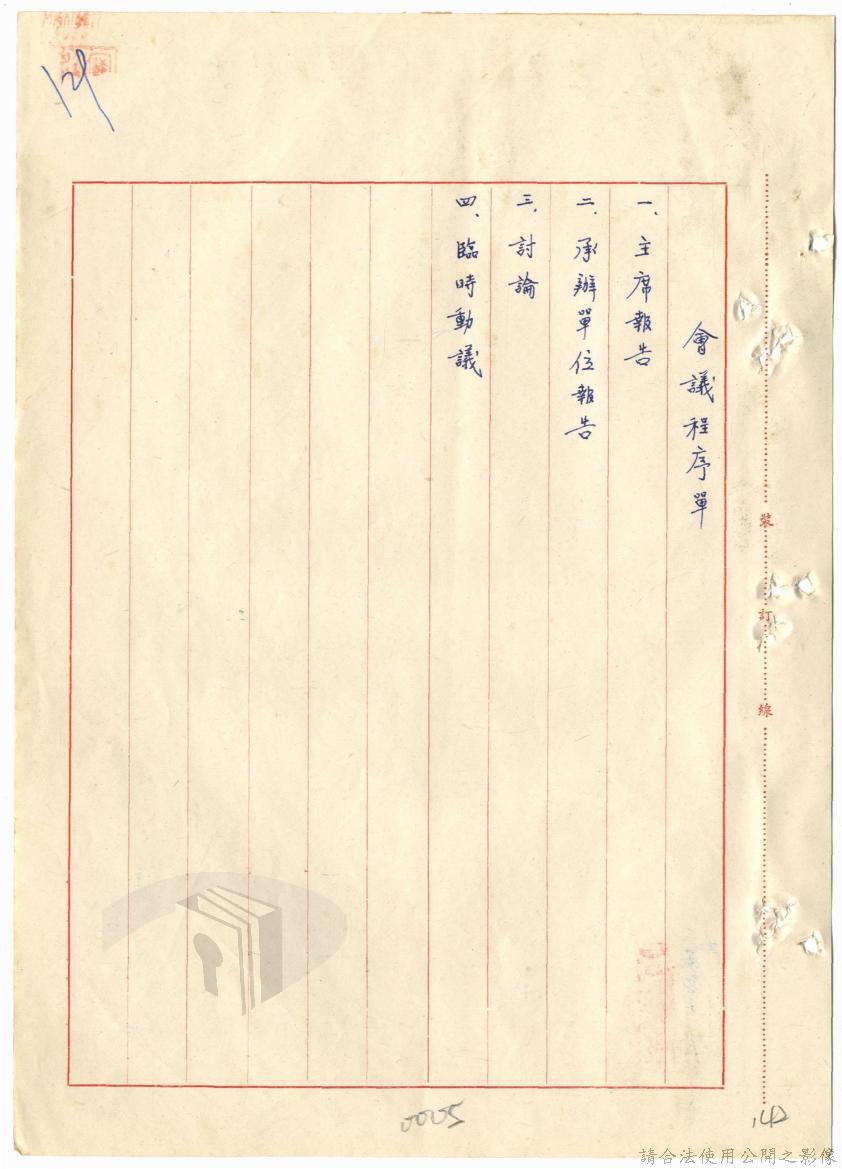 會議程序單
一、主席報告
二、承辦單位報告
三、討論
四、臨時動議
裝
訂
線
0005
142
請合法使用公開之影像